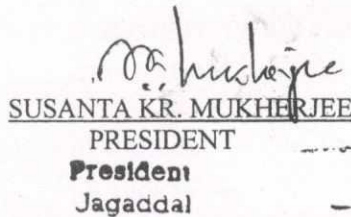 SUSANTA KR. MUKHERJEE
PRESIDENT
President
Jagaddal